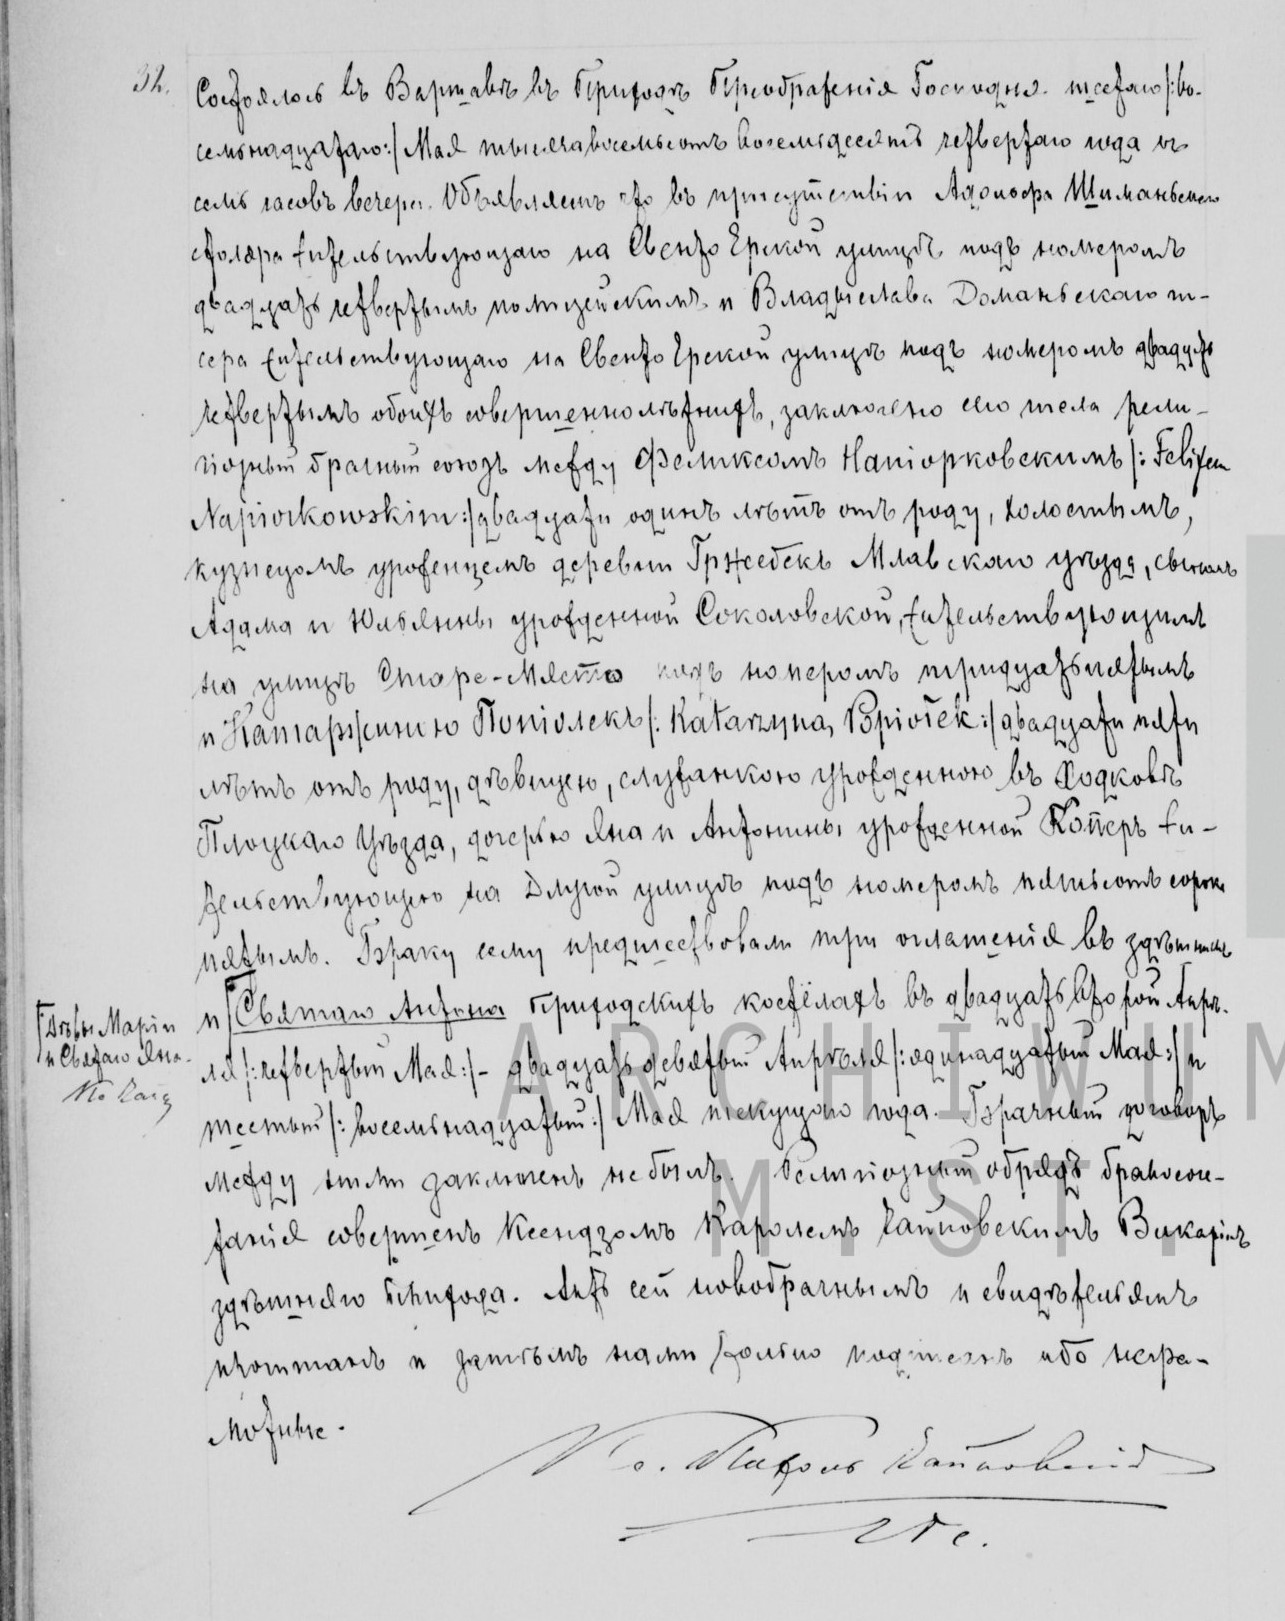 32.
Состоялось въ Варшавѣ въ Приходѣ Преображенія Господня. шестаго /:во-
семьнадцатаго:/ Мая тысяча восемьсотъ восемьдесятъ четвертаго года въ
семь часовъ вечера. Объявляемъ что въ присутствіи Адольфа Шиманьскаго
столяра жительствующаго на Свенто Ерской улицѣ подъ номеромъ
двадцать четвертымъ полицейскимъ и Владыслава Доманьскаго
жительствующаго на Свенто Ерской улицѣ подъ номеромъ двадцать
четвертымъ обоихъ совершеннолѣтнихъ, заключено сего числа рели-
гіозный брачный союзъ между Феликсомъ Напіорковскимъ /: Felixem
Napiorkowskim:/ двадцати одинъ лѣтъ отъ роду, холостымъ,
кузнецомъ уроженцемъ деревни Гржебскъ Млавскаго уѣзда, сыномъ
Адама и Юльянны урожденной Соколовской, жительствующимъ
на улицѣ Старе-Място подъ номеромъ тридцать пятымъ
и Катаржиною Попіолекъ /: Katarzyną Popiołek:/ двадцати пяти
лѣтъ отъ роду, дѣвицею, служанкою урожденною въ Ходковѣ
Плоцкаго Уѣзда, дочерью Яна и Антонины урожденной Коперъ жи-
тельствующею на Длугой улицѣ подъ номеромъ пятьсотъ сорокъ
пятымъ. Браку сему предшествовали три оглашенія въ здѣшнемъ
и Святаго Антонія приходскихъ костёлахъ въ двадцать второй Апрѣ-
Дѣвы Маріи
и Святаго Яна
ля /:четвертый Мая:/ - двадцать девятый Апрѣля /:одинадцатый Мая:/ и
шестый /: восемьнадцатый:/ Мая текущаго года. Брачный договоръ
между ними заключенъ не былъ. Религіозный обрядъ бракосоче-
танія совершенъ Ксендзомъ Каролемъ Викаріемъ
здѣшняго прихода. Актъ сей новобрачнымъ и свидѣтелямъ
прочитанъ и затѣмъ нами только подписанъ ибо негра-
мотные.
ARCHIWUM